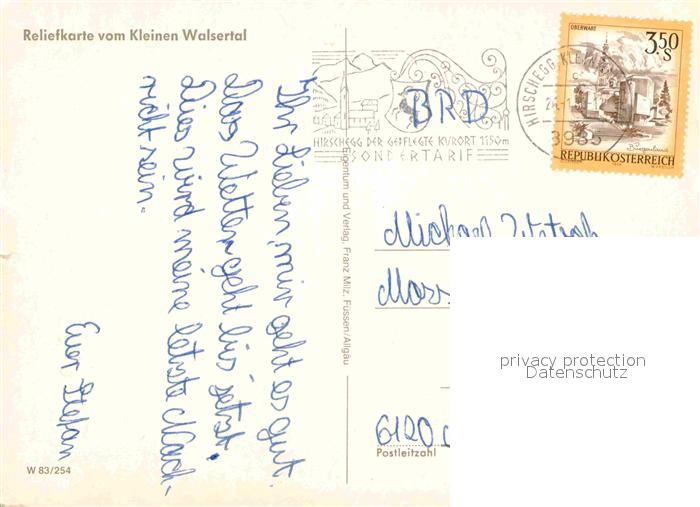 Reliefkarte vom Kleinen Walsertal
Ihr Lieben, mir geht es gut.
Das Wetter geht bis jetzt.
Dies wird meine letzte Nach-
richt sein.
Euer Stefan
W 83/254
Eigentum und Verlag, Franz Milz, Füssen/Allgäu
BRD
HIRSCHEGG DER GEPFLEGTE KURORT 1150m
SONDERTARIF
HIRSCHEGG, KLEIN
OBERWART
3.50
S
Burgenland
REPUBLIK ÖSTERREICH
Michael
6120
Postleitzahl
privacy protection
Datenschutz